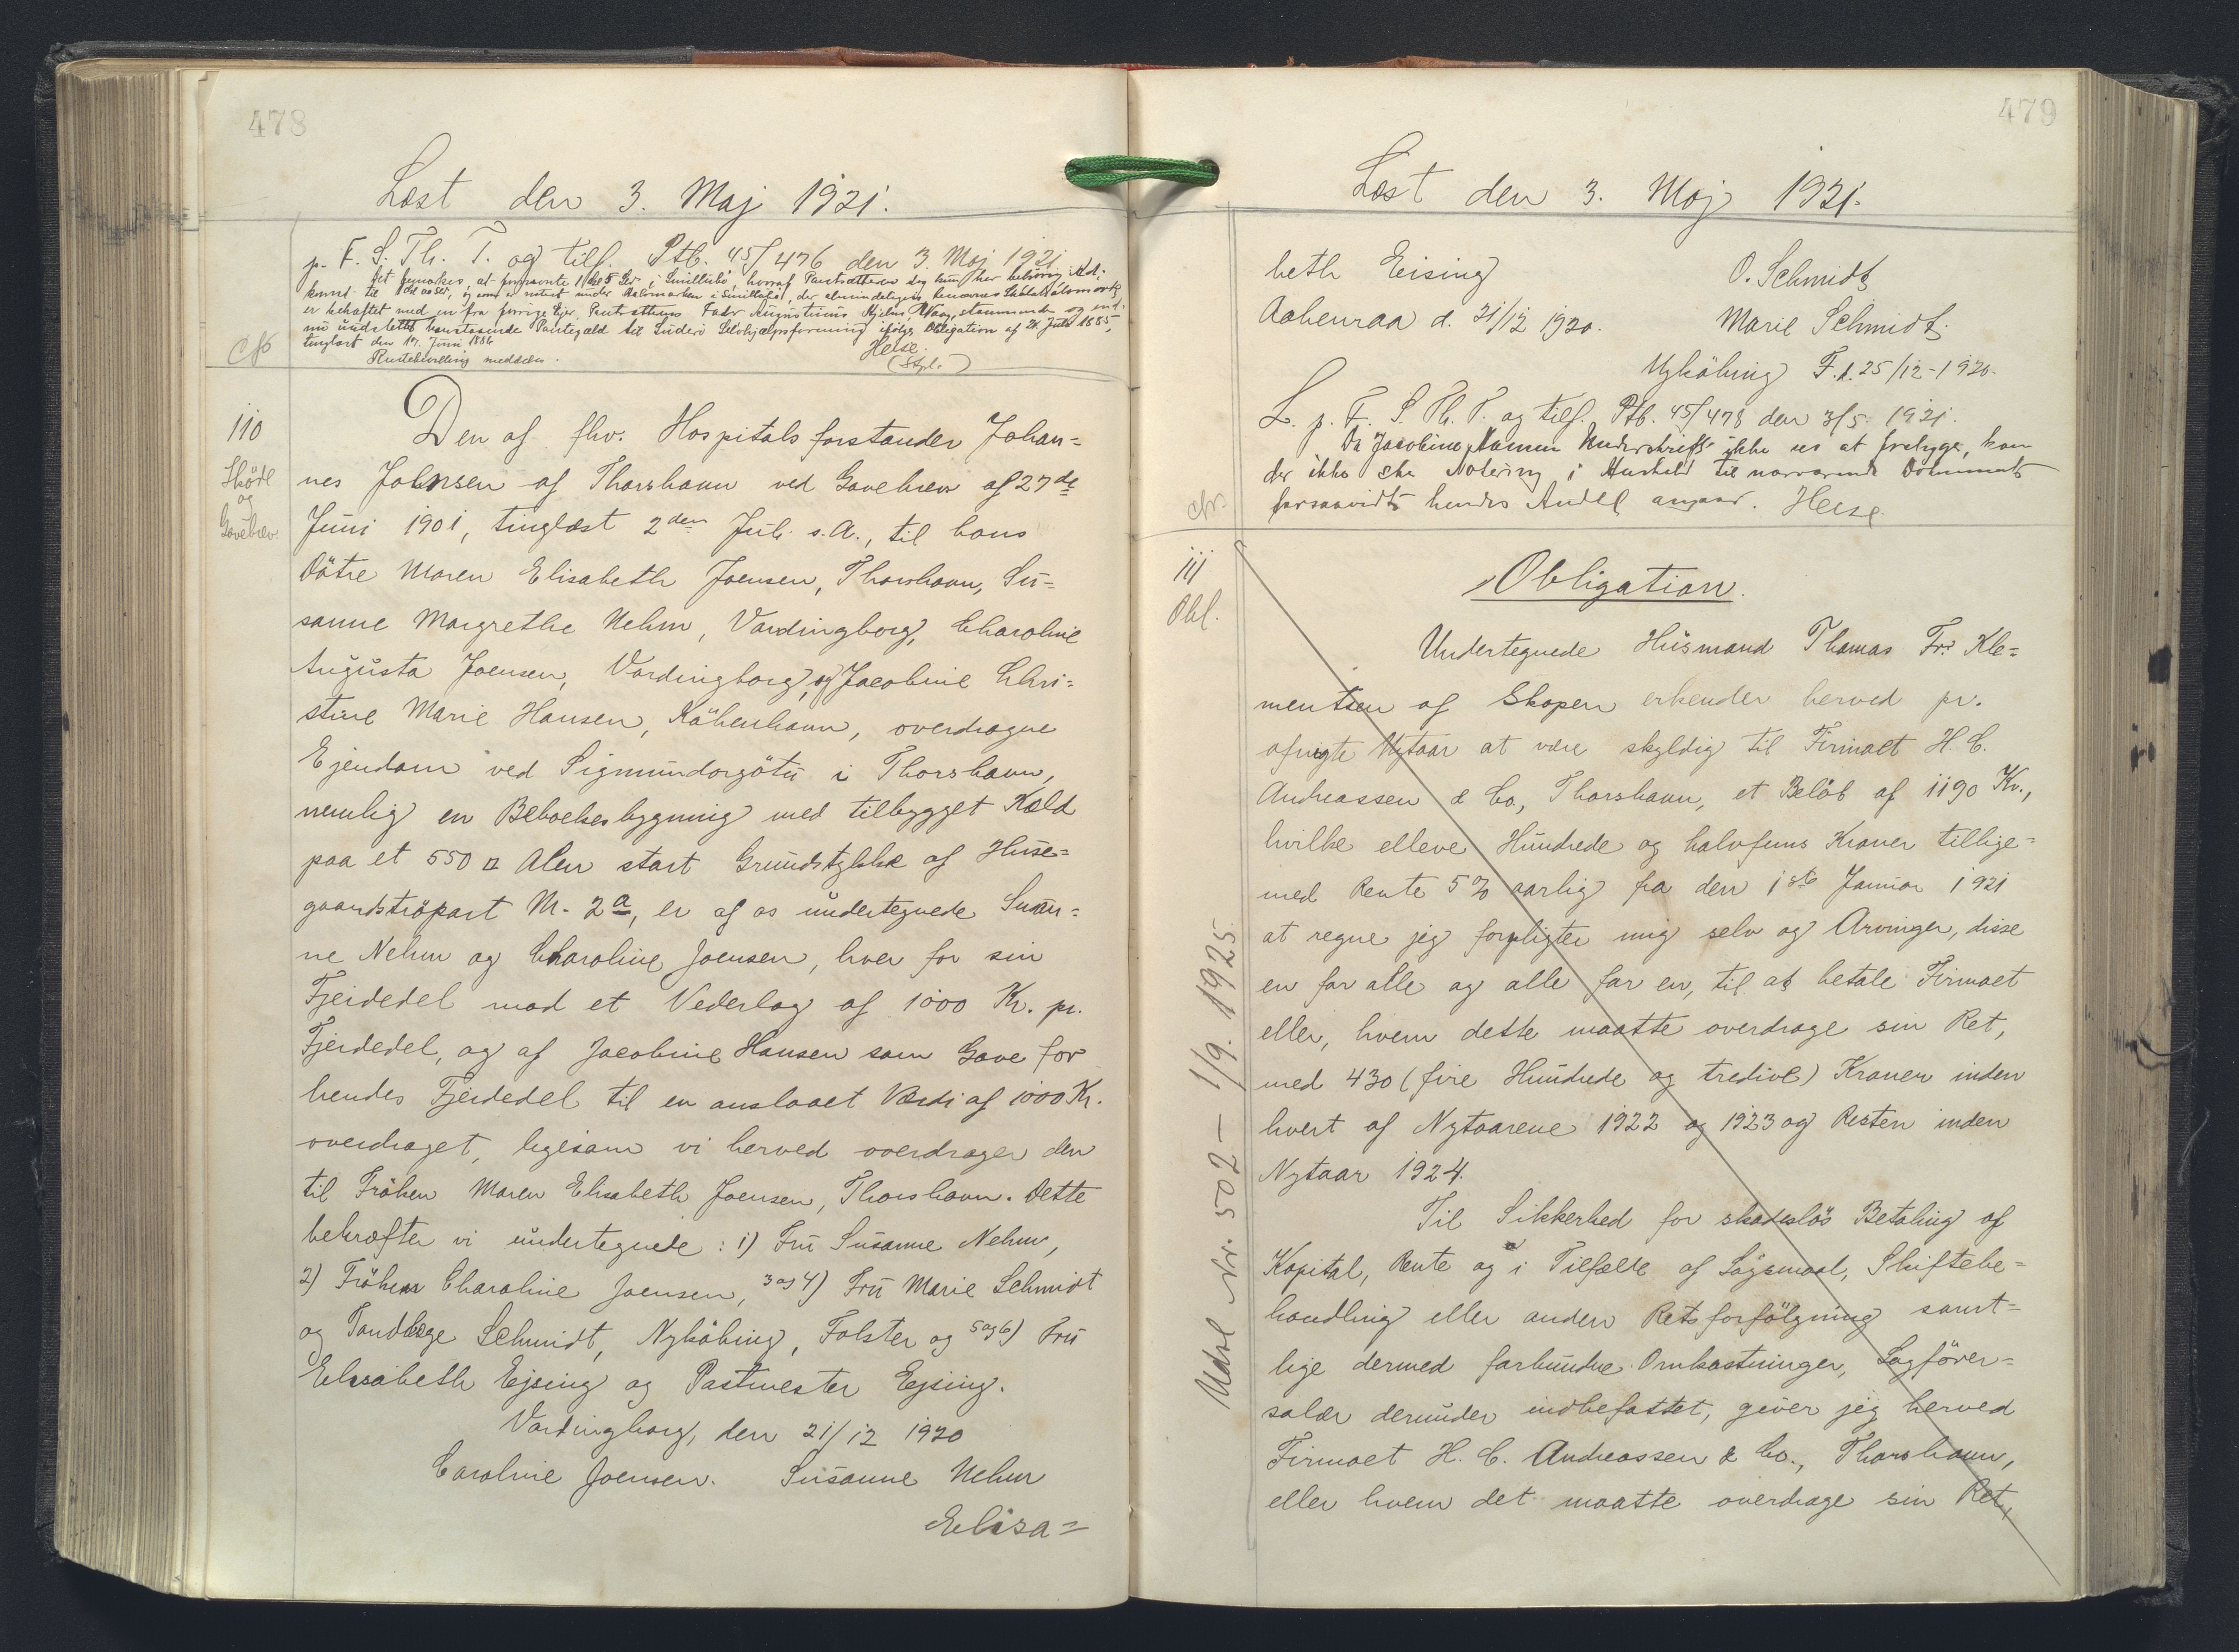 478
Læst den 3. Maj 1921.
p. F. S. Th. T. og tilf. Ptb. 45/476 den 3. Maj 1921.
Det bemærkes, at forinævnte
er behæftet med en fra forrige Ejer, Pantsætterens Fader Augustinus stammende og ind-
nu uudslettet henstaaende Pantegæld til Suderø Selvhjælpsforening ifølge Obligation af 24 Juli 1885,
tinglæst den 17. Juni 1886
Heise.
Cfr
110
Skøde
og
Gavebrev.
Den af fhv. Hospitalsforstander Johan=
nes Johnsen af Thorshavn ved Gavebrev af 27de
Juni 1901, tinglæst 2den Juli s.A., til hans
Døtre Maren Elisabeth Joensen, Thorshavn, Su=
sanne Margrethe Nehm, Vordingborg, Charoline
Augusta Joensen, Vordingborg, og Jacobine Chri=
stine Marie Hansen, København, overdragne
Ejendom ved Sigmundorgøtu i Thorshavn,
nemlig en Beboelsesbygning med tilbygget Kæld
paa et 550 □ Alen stort Grundstykke af Huse=
gaardstrøpart M. 2a, er af os undertegnede Susan=
ne Nehm og Charoline Joensen, hver for sin
Fjerdedel mod et Vederlag af 1000 Kr. pr.
Fjerdedel, og af Jacobine Hansen som Gave for
hendes Fjerdedel til en anslaaet Værdi af 1000 Kr.
overdraget, ligesom vi herved overdrager den
til Frøken Maren Elisabeth Joensen, Thorshavn. Dette
bekræfter vi undertegnede: 1) Fru Susanne Nehm,
2) Frøken Charoline Joensen, 3 og 4) Fru Marie Schmidt
og Tandlæge Schmidt, Nykøbing, Falster og 5 og 6) Fru
Elisabeth Ejsing og Postmester Ejsing.
Vordingborg, den 21/12 1920
Caroline Joensen. Susanne Nehm
Elisa=
479
Læst den 3. Maj 1921.
beth Eising O. Schmidt
Aabenraa d. 31/12 1920. Marie Schmidt.
Nykøbing F. d. 25/12-1920.
L. p. F. S. Th. T. og tilf. Ptb. 45/478 den 3/5 1921.
Da Jacobine Hansens Underskrift ikke ses at foreligge, kan
der ikke ske Notering i Henhold til nærværende Dokument
forsaavidt hendes Andel angaar. Heise.
cfr.
111
Obl.
Obligation.
Undertegnede Husmand Thomas Fr. Kle=
mentsen af Skopen erkender herved pr.
afvigte Nytaar at være skyldig til Firmaet H. C.
Andreassen & Co, Thorshavn, et Beløb af 1190 Kr.,
hvilke elleve Hundrede og halvfems Kroner tillige=
med Rente 5% aarlig fra den 1ste Januar 1921
at regne jeg forpligter mig selv og Arvinger, disse
en for alle og alle for en, til at betale Firmaet
eller, hvem dette maatte overdrage sin Ret,
med 430 (fire Hundrede og tredive) Kroner inden
hvert af Nytaarene 1922 og 1923 og Resten inden
Nytaar 1924.
Til Sikkerhed for skadesløs Betaling af
Kapital, Rente og i Tilfælde af Søgsmaal, Skiftebe=
handling eller anden Retsforfølgning samt=
lige dermed forbundne Omkostninger, Sagfører=
salær derunder indbefattet, giver jeg herved
Firmaet H. C. Andreassen & Co., Thorshavn,
eller hvem det maatte overdrage sin Ret,
Udsl Nr. 502 – 1/9. 1925.